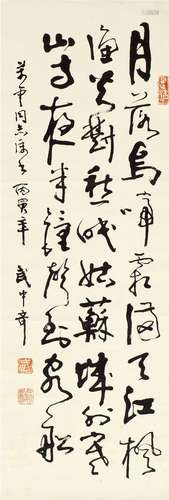 月落烏啼霜滿天江楓
漁火對愁眠姑蘇城外寒
山寺夜半鐘聲到客船
同志 丙寅年 武中奇